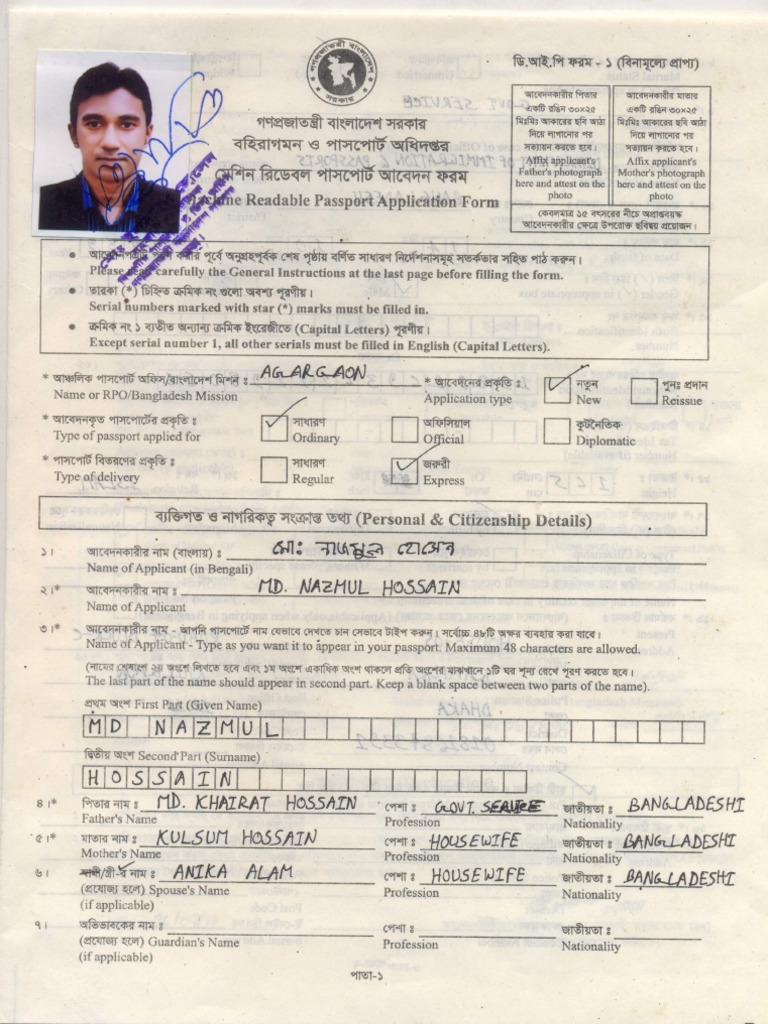 গণপ্রজাতন্ত্রী বাংলাদেশ
সরকার
ডি.আই.পি ফরম - ১ (বিনামূল্যে প্রাপ্য)
গণপ্রজাতন্ত্রী বাংলাদেশ সরকার
বহিরাগমন ও পাসপোর্ট অধিদপ্তর
মেশিন রিডেবল পাসপোর্ট আবেদন ফরম
Machine Readable Passport Application Form
আবেদনকারীর পিতার
একটি রঙিন ৩০×২৫
মিঃমিঃ আকারের ছবি আঠা
দিয়ে লাগানোর পর
সত্যায়ন করতে হবে।
Affix applicant's
Father's photograph
here and attest on the
photo
আবেদনকারীর মাতার
একটি রঙিন ৩০×২৫
মিঃমিঃ আকারের ছবি আঠা
দিয়ে লাগানোর পর
সত্যায়ন করতে হবে।
Affix applicant's
Mother's photograph
here and attest on the
photo
কেবলমাত্র ১৫ বৎসরের নীচে অপ্রাপ্তবয়স্ক
আবেদনকারীর ক্ষেত্রে উপরোক্ত ছবিদ্বয় প্রয়োজন।
• আবেদনপত্রটি পূরণ করার পূর্বে অনুগ্রহপূর্বক শেষ পৃষ্ঠায় বর্ণিত সাধারণ নির্দেশনাসমূহ সতর্কতার সহিত পাঠ করুন।
Please read carefully the General Instructions at the last page before filling the form.
• তারকা (*) চিহ্নিত ক্রমিক নং গুলো অবশ্য পূরণীয়।
Serial numbers marked with star (*) marks must be filled in.
• ক্রমিক নং ১ ব্যতীত অন্যান্য ক্রমিক ইংরেজীতে (Capital Letters) পূরণীয়।
Except serial number 1, all other serials must be filled in English (Capital Letters).
* আঞ্চলিক পাসপোর্ট অফিস/বাংলাদেশ মিশন ঃ AGARGAON * আবেদনের প্রকৃতি ঃ ✓ নতুন পুনঃ প্রদান
Name or RPO/Bangladesh Mission Application type New Reissue
* আবেদনকৃত পাসপোর্টের প্রকৃতি ঃ ✓ সাধারণ অফিসিয়াল কুটনৈতিক
Type of passport applied for Ordinary Official Diplomatic
* পাসপোর্ট বিতরণের প্রকৃতি ঃ সাধারণ ✓ জরুরী
Type of delivery Regular Express
ব্যক্তিগত ও নাগরিকত্ব সংক্রান্ত তথ্য (Personal & Citizenship Details)
১। আবেদনকারীর নাম (বাংলায়) ঃ মোঃ নাজমুল হোসেন
Name of Applicant (in Bengali)
২।* আবেদনকারীর নাম ঃ MD. NAZMUL HOSSAIN
Name of Applicant
৩।* আবেদনকারীর নাম - আপনি পাসপোর্টে নাম যেভাবে দেখতে চান সেভাবে টাইপ করুন। সর্বোচ্চ ৪৮টি অক্ষর ব্যবহার করা যাবে।
Name of Applicant - Type as you want it to appear in your passport. Maximum 48 characters are allowed.
(নামের শেষাংশ ২য় অংশে লিখতে হবে এবং ১ম অংশে একাধিক অংশ থাকলে প্রতি অংশের মাঝখানে ১টি ঘর শূন্য রেখে পূরণ করতে হবে।
The last part of the name should appear in second part. Keep a blank space between two parts of the name).
প্রথম অংশ First Part (Given Name)
MD NAZMUL
দ্বিতীয় অংশ Second Part (Surname)
HOSSAIN
৪।* পিতার নাম ঃ MD. KHAIRAT HOSSAIN পেশা ঃ GOVT. SERVICE জাতীয়তা ঃ BANGLADESHI
Father's Name Profession Nationality
৫।* মাতার নাম ঃ KULSUM HOSSAIN পেশা ঃ HOUSEWIFE জাতীয়তা ঃ BANGLADESHI
Mother's Name Profession Nationality
৬। স্বামী/স্ত্রী-র নাম ঃ ANIKA ALAM পেশা ঃ HOUSEWIFE জাতীয়তা ঃ BANGLADESHI
(প্রযোজ্য হলে) Spouse's Name Profession Nationality
(if applicable)
৭। অভিভাবকের নাম ঃ পেশা ঃ জাতীয়তা ঃ
(প্রযোজ্য হলে) Guardian's Name Profession Nationality
(if applicable)
পাতা-১